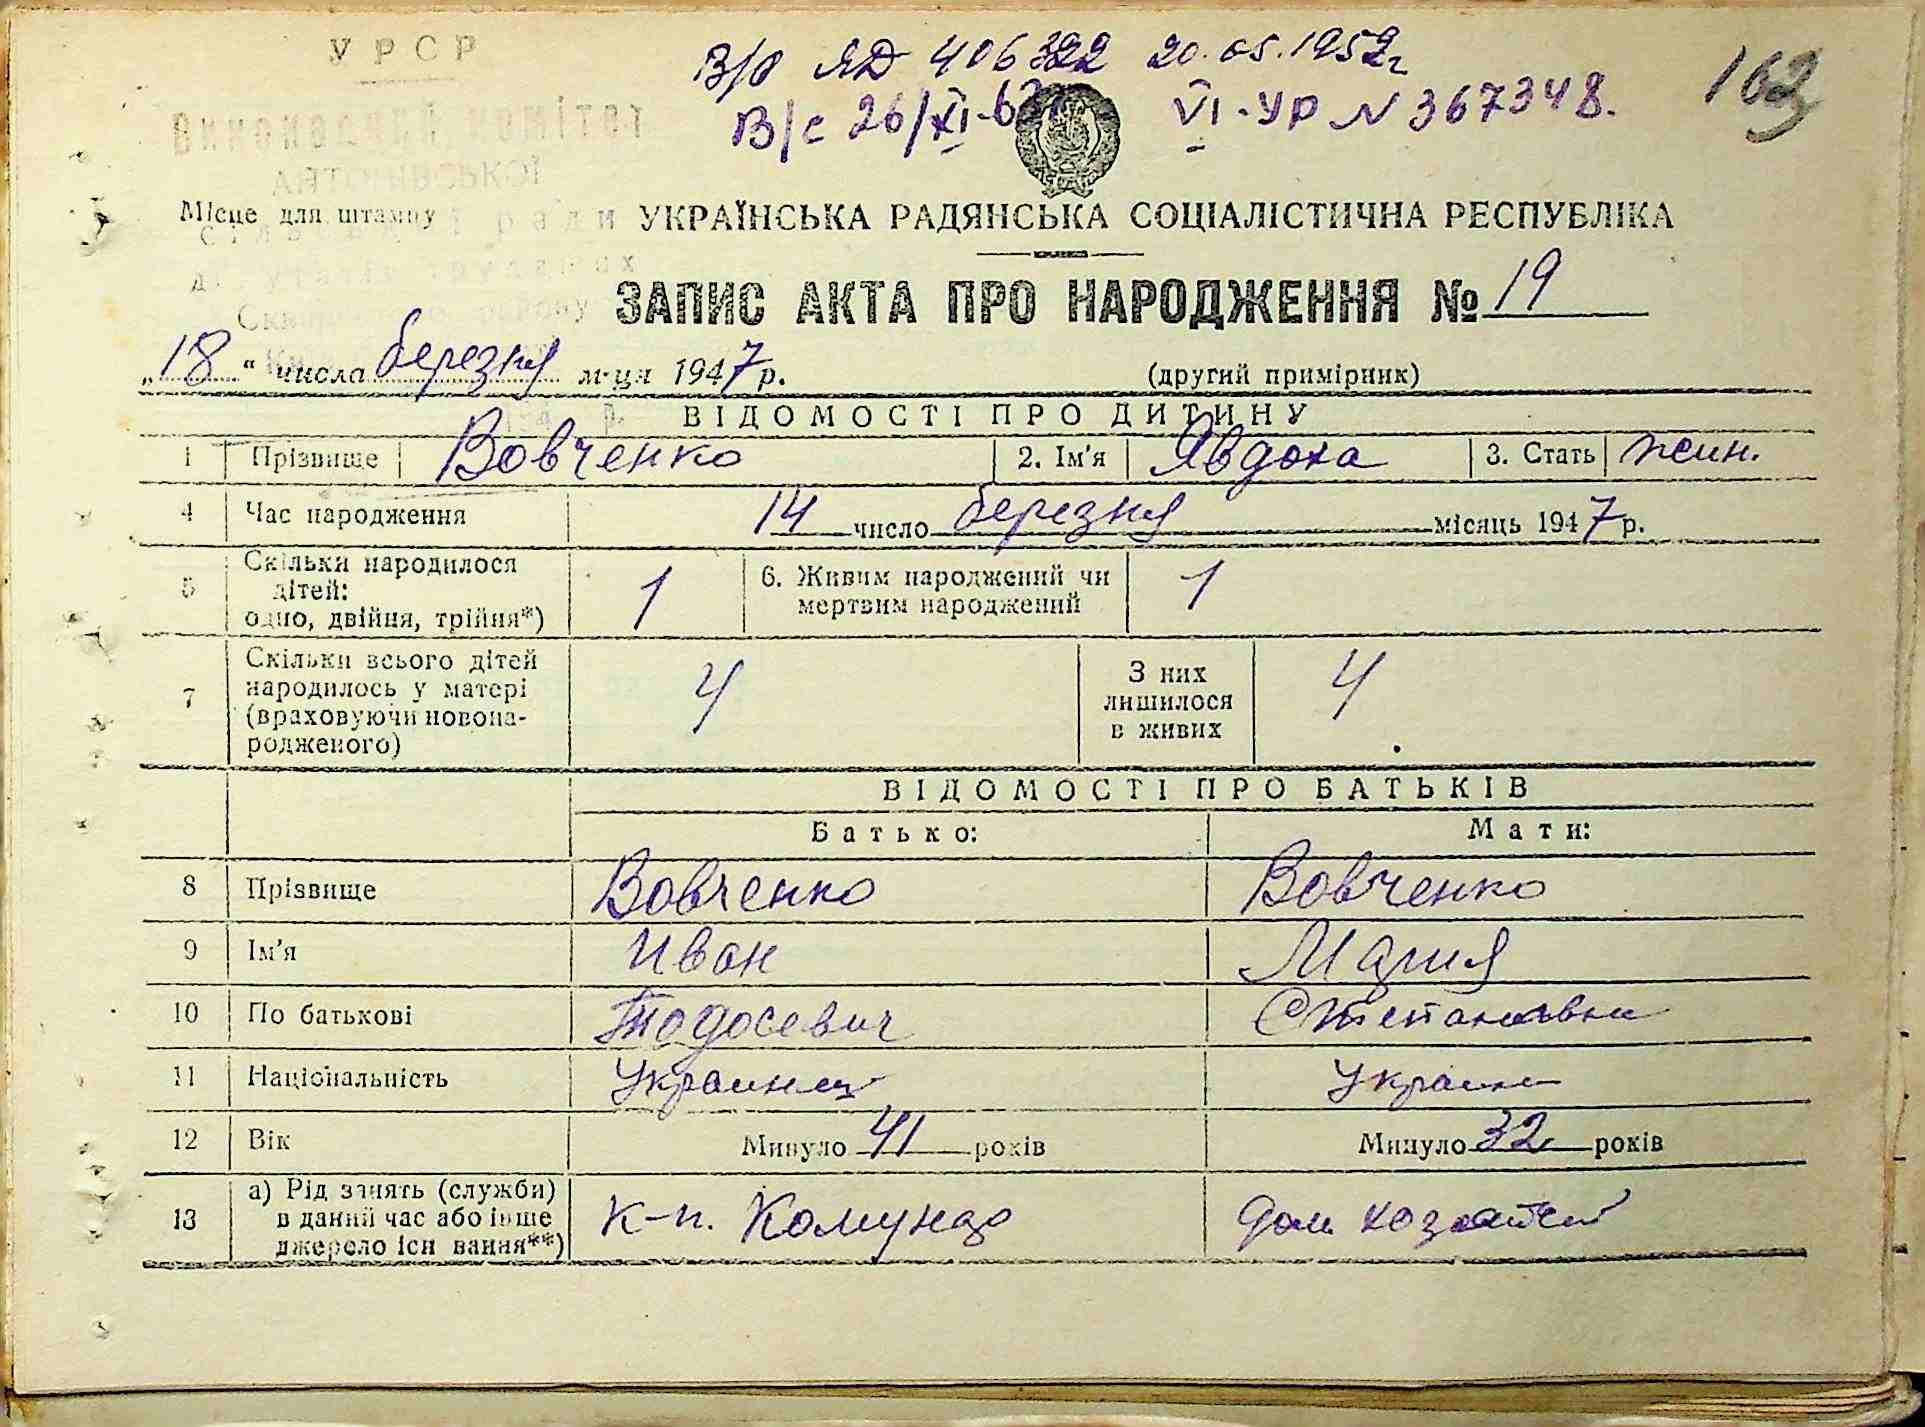 УРСР
В/р ЯД 406322 20.05.1952г
162
В/с 26/XI-62 VI-УР N 367348.
Виконавчий комітет
АНТОНІВСЬКОЇ
Місце для штампу
сільської ради
УКРАЇНСЬКА РАДЯНСЬКА СОЦІАЛІСТИЧНА РЕСПУБЛІКА
депутатів трудящих
Сквирського району
ЗАПИС АКТА ПРО НАРОДЖЕННЯ № 19
„18“ числа березня м-ця 1947 р.
(другий примірник)
ВІДОМОСТІ ПРО ДИТИНУ
1 Прізвище Вовченко 2. Ім'я Явдоха 3. Стать жін.
4 Час народження 14 число березня місяць 1947 р.
5 Скільки народилося дітей: одно, двійня, трійня*) 1 6. Живим народжений чи мертвим народжений 1
7 Скільки всього дітей народилось у матері (враховуючи новона-родженого) 4 З них лишилося в живих 4
ВІДОМОСТІ ПРО БАТЬКІВ
Батько: Мати:
8 Прізвище Вовченко Вовченко
9 Ім'я Иван Мария
10 По батькові Тодосевич Степановна
11 Національність Украинец Украин
12 Вік Минуло 41 років Минуло 32 років
13 а) Рід занять (служби) в даний час або інше джерело існування**) к-п. Комунар дом хозяйка